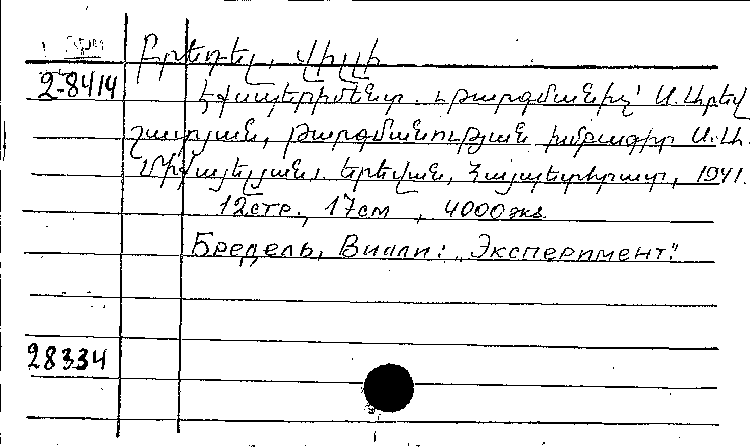 Բրեդել, Վիլլի
2-8414
Էքսպերիմենտ. թարգմանիչ՝ Ս. Արեվ
շատյան, թարգմանության խմբագիր Ս. Ա.
Միքայելյան։ Երեվան, Հայպետհրատ, 1941.
12стр., 17см, 4000экз.
Бредель, Вилли: „Эксперимент."
28334